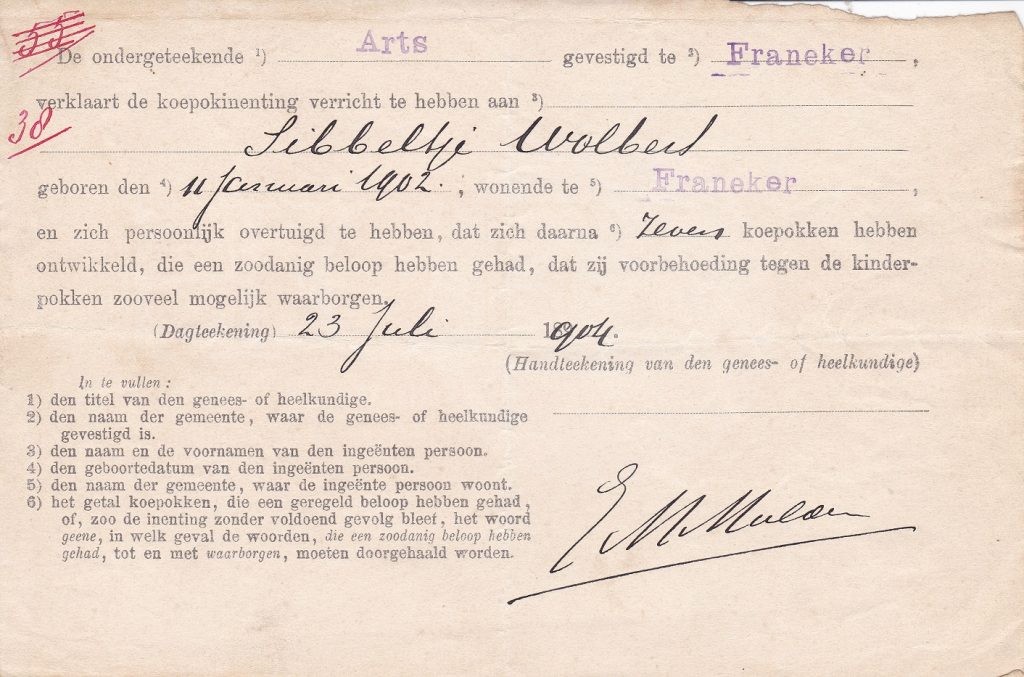 55
De ondergeteekende 1) Arts gevestigd te 2) Franeker,
verklaart de koepokinenting verricht te hebben aan 3)
38
Sibbeltje Wolbers
geboren den 4) 11 Januari 1902., wonende te 5) Franeker,
en zich persoonlijk overtuigd te hebben, dat zich daarna 6) zeven koepokken hebben
ontwikkeld, die een zoodanig beloop hebben gehad, dat zij voorbehoeding tegen de kinder-
pokken zooveel mogelijk waarborgen.
(Dagteekening) 23 Juli 1904.
(Handteekening van den genees- of heelkundige)
In te vullen:
1) den titel van den genees- of heelkundige.
2) den naam der gemeente, waar de genees- of heelkundige
gevestigd is.
3) den naam en de voornamen van den ingeënten persoon.
4) den geboortedatum van den ingeënten persoon.
5) den naam der gemeente, waar de ingeënte persoon woont.
6) het getal koepokken, die een geregeld beloop hebben gehad,
of, zoo de inenting zonder voldoend gevolg bleef, het woord
geene, in welk geval de woorden, die een zoodanig beloop hebben
gehad, tot en met waarborgen, moeten doorgehaald worden.